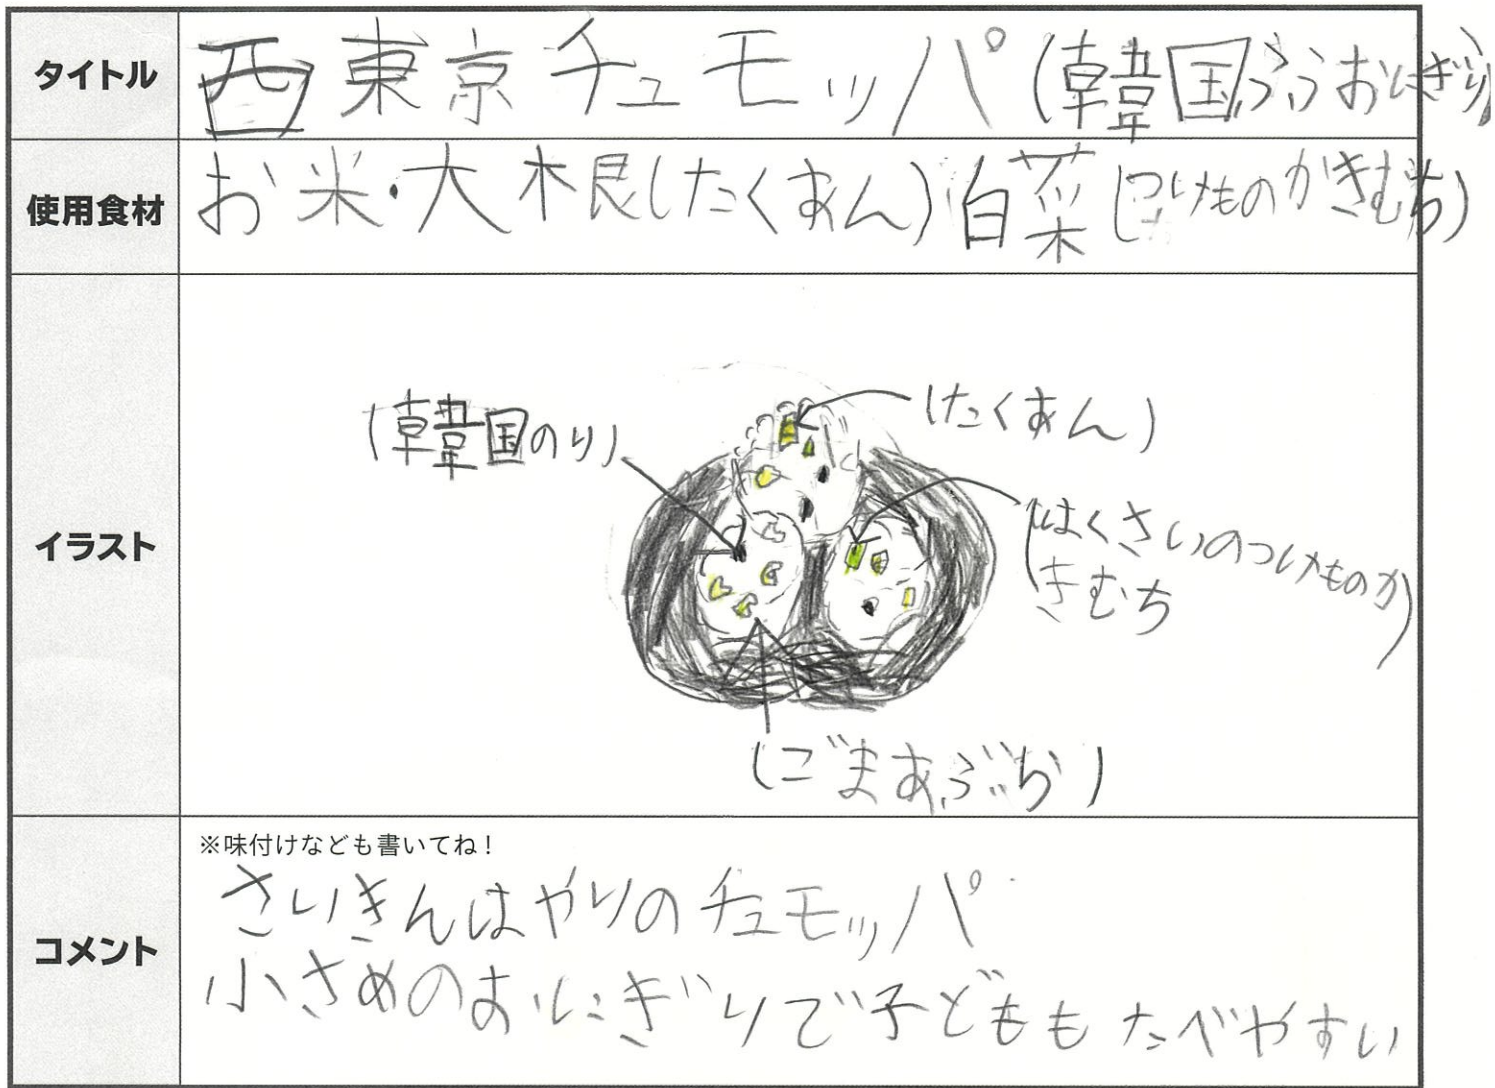 タイトル
西東京チュモッパ(韓国ふうおにぎり)
使用食材
お米・大根(たくあん)白菜(つけものかきむち)
イラスト
(たくあん)
(韓国のり)
(はくさいのつけものか
きむち)
(ごまあぶら)
コメント
※味付けなども書いてね!
さいきんはやりのチュモッパ
小さめのおにぎりで子どももたべやすい